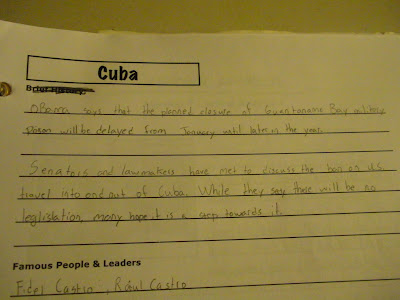 Cuba
Brief History:
OBama says that the planned closure of Guantanamo Bay military
prison will be delayed from January until later in the year.
Senators and lawmakers have met to discuss the ban on U.S.
travel into and out of Cuba. While they say there will be no
legislation, many hope it is a step towards it.
Famous People & Leaders
Fidel Castro, Raúl Castro